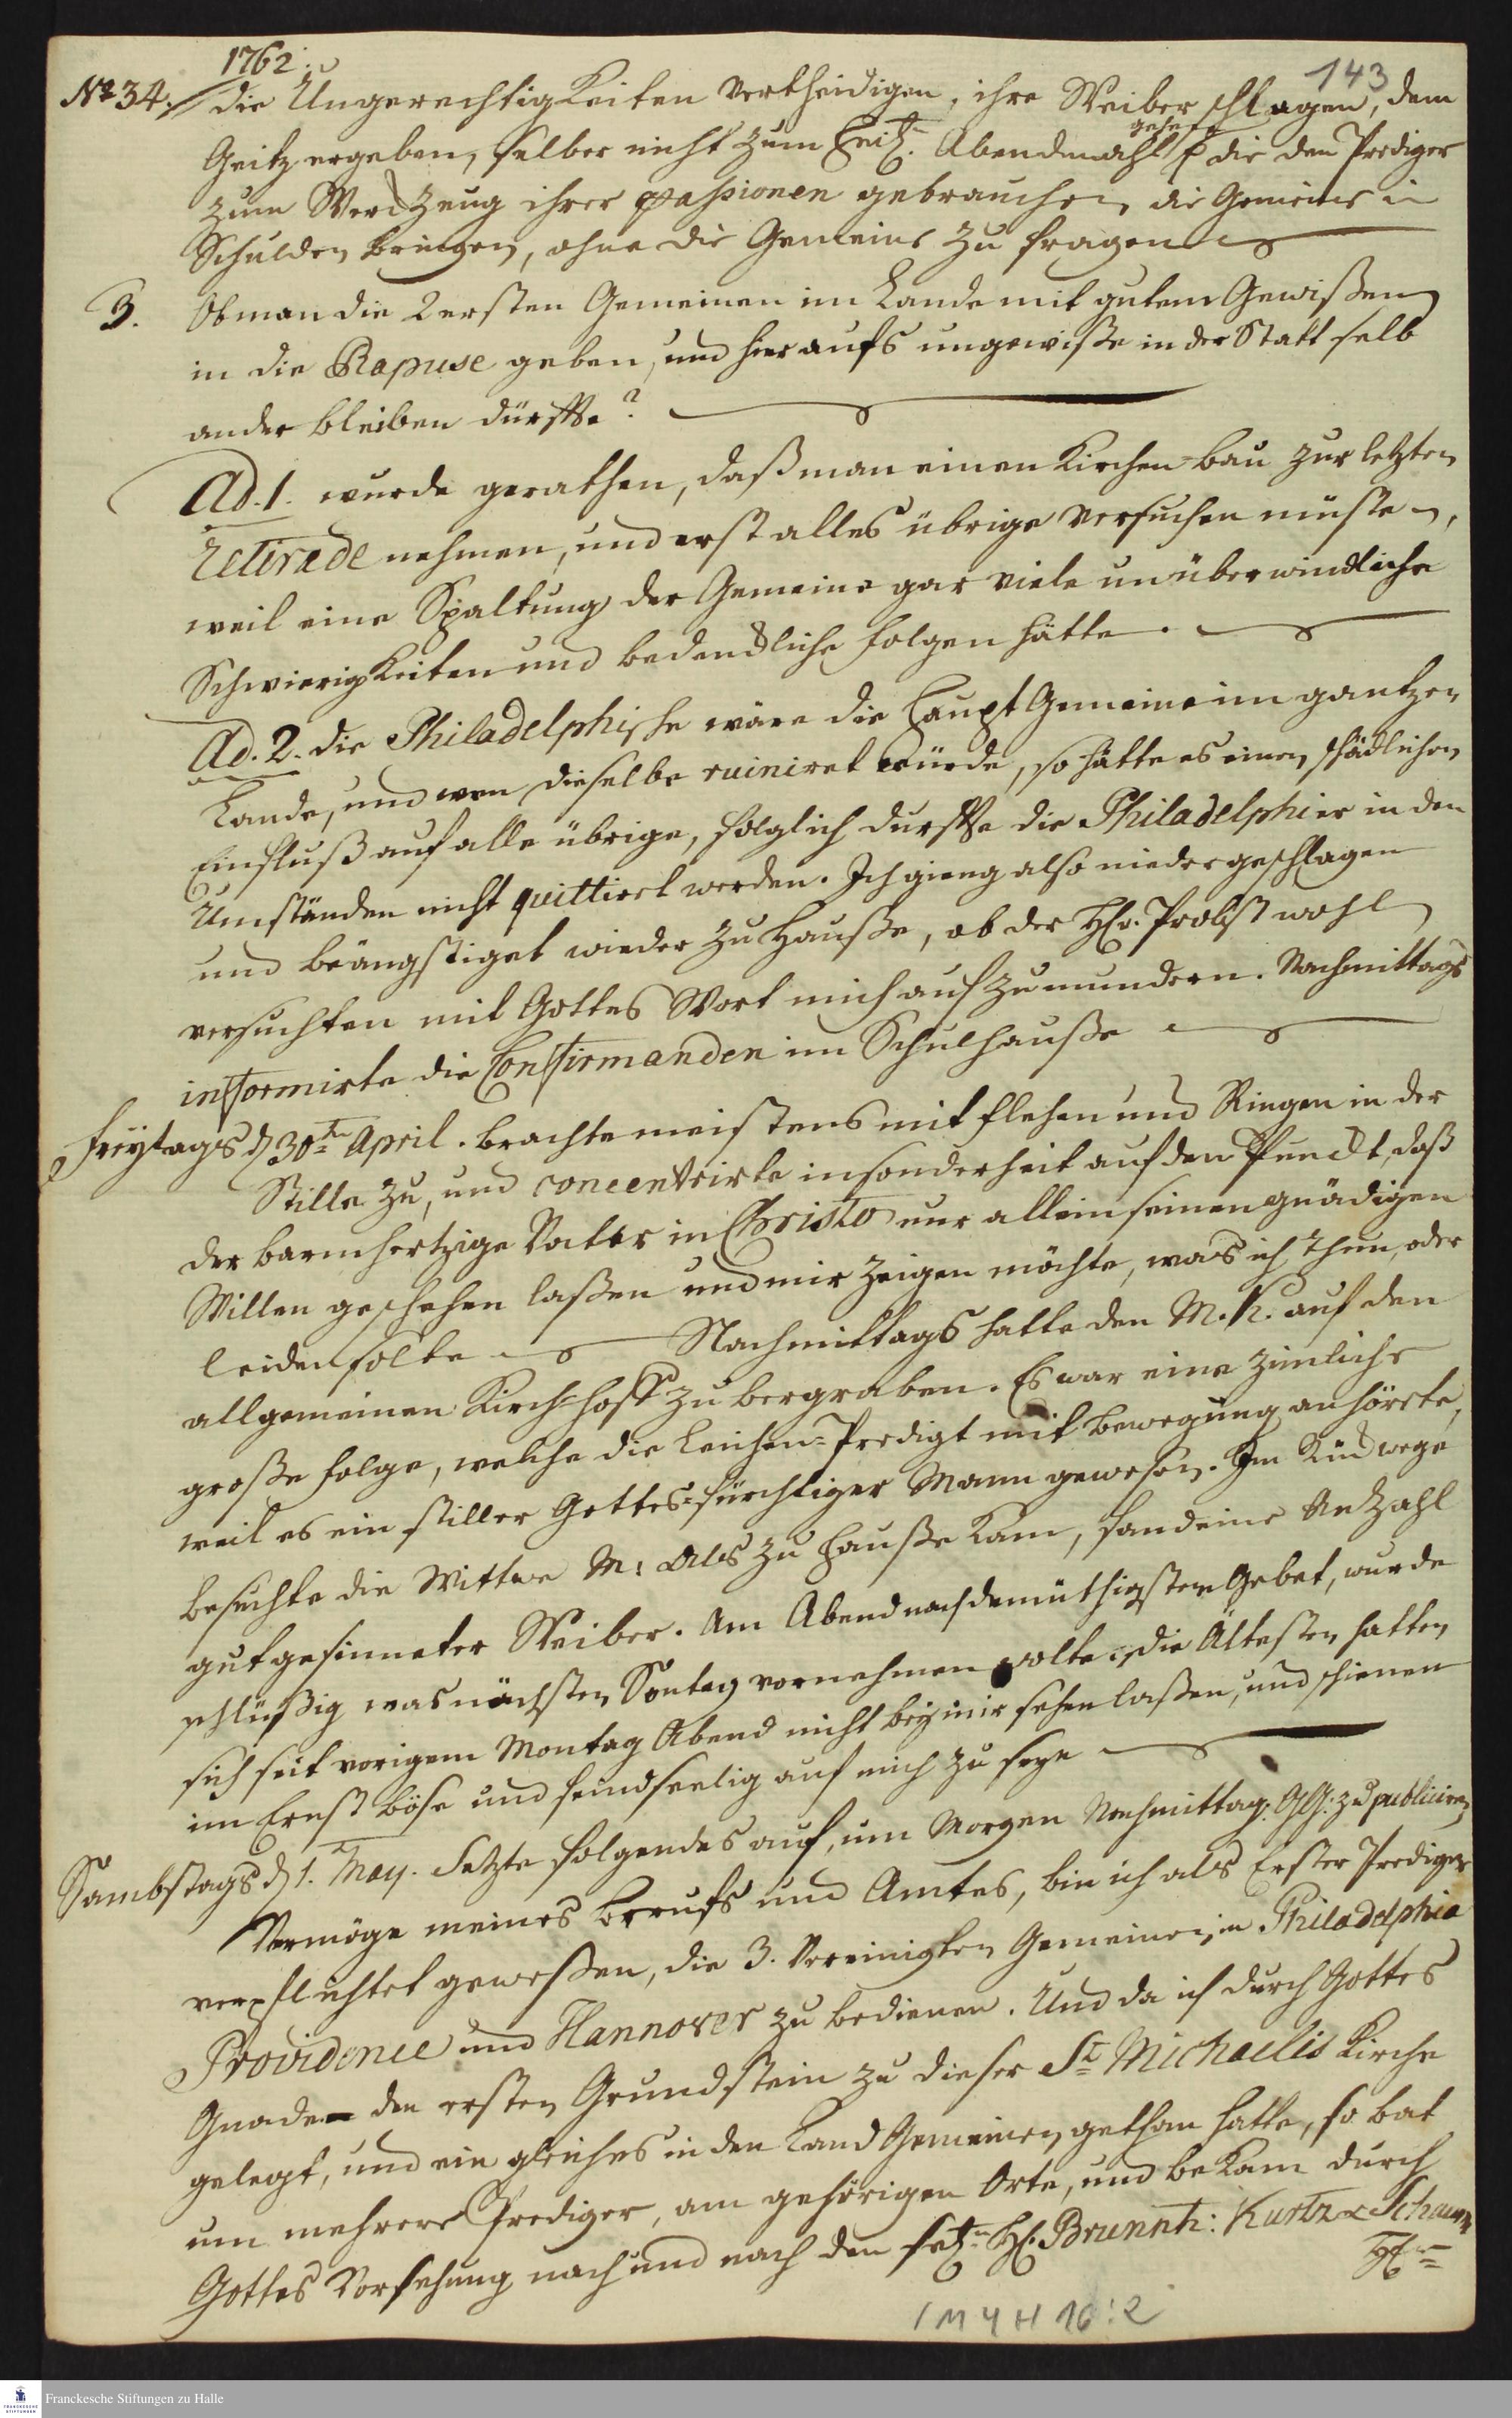 1762.
143
No 34. die Ungerechtigkeiten vertheidigen, ihre Weiber schlagen, dem
Geitz ergeben, selber nicht zum Heil. Abendmahl gehen p die den Prediger
zum Werckzeug ihrer passionen gebrauchen, die Gemeine in
Schulden bringen, ohne die Gemeine zu fragen
3. Ob man die 2 ersten Gemeinen im Lande mit gutem Gewißen
in die Rapuse geben, und hier aufs ungewiße in der Statt selb
ander bleiben dürffte?
Ad. 1. wurde gerathen, daß man einen Kirchen-bau zur letzten
Retirade nehmen, und erst alles übrige versuchen müste,
weil eine Spaltung der Gemeine gar viele unüberwindliche
Schwierigkeiten und bedenckliche folgen hätte.
Ad. 2. die Philadelphische wäre die Haupt Gemeine im gantzen
Lande, und wen dieselbe ruiniret würde, so hätte es einen schädlichen
Einfluß auf alle übrige, folglich durffte die Philadelphier in den
Umständen nicht quittiert werden. Ich gieng also niedergeschlagen
und beängstiget wieder zu Hauße, ob der H. Probst wohl
versuchten mit Gottes Wort mich aufzumundern. Nachmittags
informirte die Confirmanden im Schulhauße
Freytags d 30ten April. brachte meistens mit flehen und Ringen in der
Stille zu, und concentrirte insonderheit auf den Punckt, daß
der barmhertzige Vater in Christo nur allein seinen gnädigen
Willen geschehen laßen und mir zeigen möchte, was ich thun, oder
leiden solte Nachmittags hatte den M. K. auf den
allgemeinen Kirch-hoff zu bergraben. Es war eine zimliche
große folge, welche die Leichen-Predigt mit bewegung anhörete,
weil es ein stiller Gottes-fürchtiger Mann gewesen. Im Rückwege
besuchte die Wittwe M: Als zu Hauße kam, fand eine Anzahl
gutgesinneter Weiber. Am Abend nach demüthigstem Gebet, wurde
schlüßig was nächsten Sontag vornehmen wolte. die Ältesten hatten
sich seit vorigem Montag Abend nicht bey mir sehen laßen, und schienen
im Ernst böse und feindseelig auf mich zu seyn
Sambstags d 1. May. Setzte folgendes auf, um Morgen Nachmittag. GG. zu publiciren,
Vermöge meines Berufs und Amtes, bin ich als Erster Prediger
verpflichtet geweßen, die 3. Vereinigten Gemeinen, in Philadelphia
Providence und Hannover zu bedienen. Und da ich durch Gottes
Gnade den ersten Grundstein zu dieser St Michaelis Kirche
gelegt, und ein gleiches in den Land Gemeinen gethan hatte, so bat
um mehrere Prediger, am gehörigen Orte, und bekam durch
Gottes Vorsehung nach und nach den H. Brunnh: Kurtz Schaum
1 M 4 H 10 : 2
Franckesche Stiftungen zu Halle